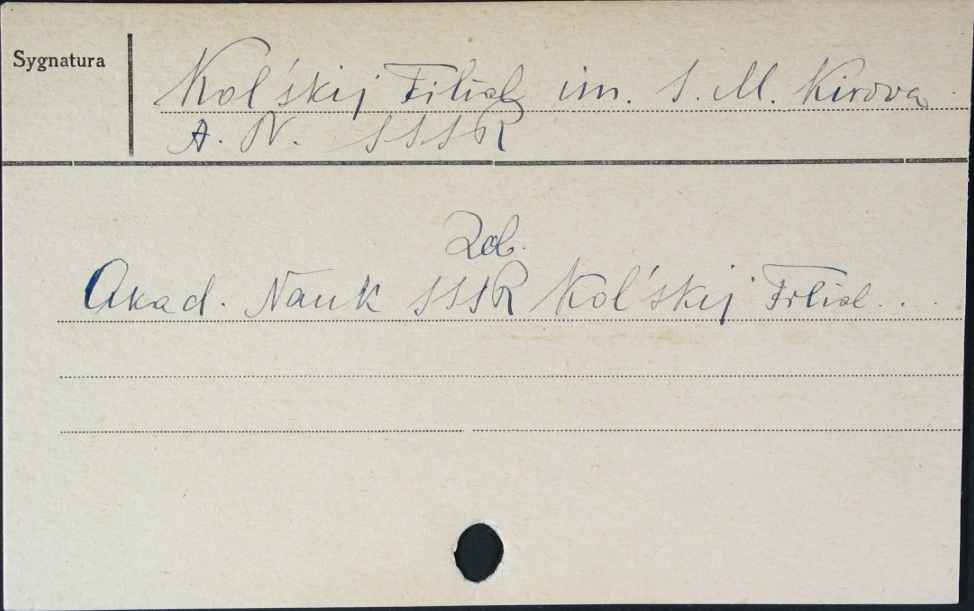 Sygnatura
Kol'skij Filial im. S. M. Kirova
A. N. SSSR
Zob.
Akad. Nauk SSSR Kol'skij Filial...